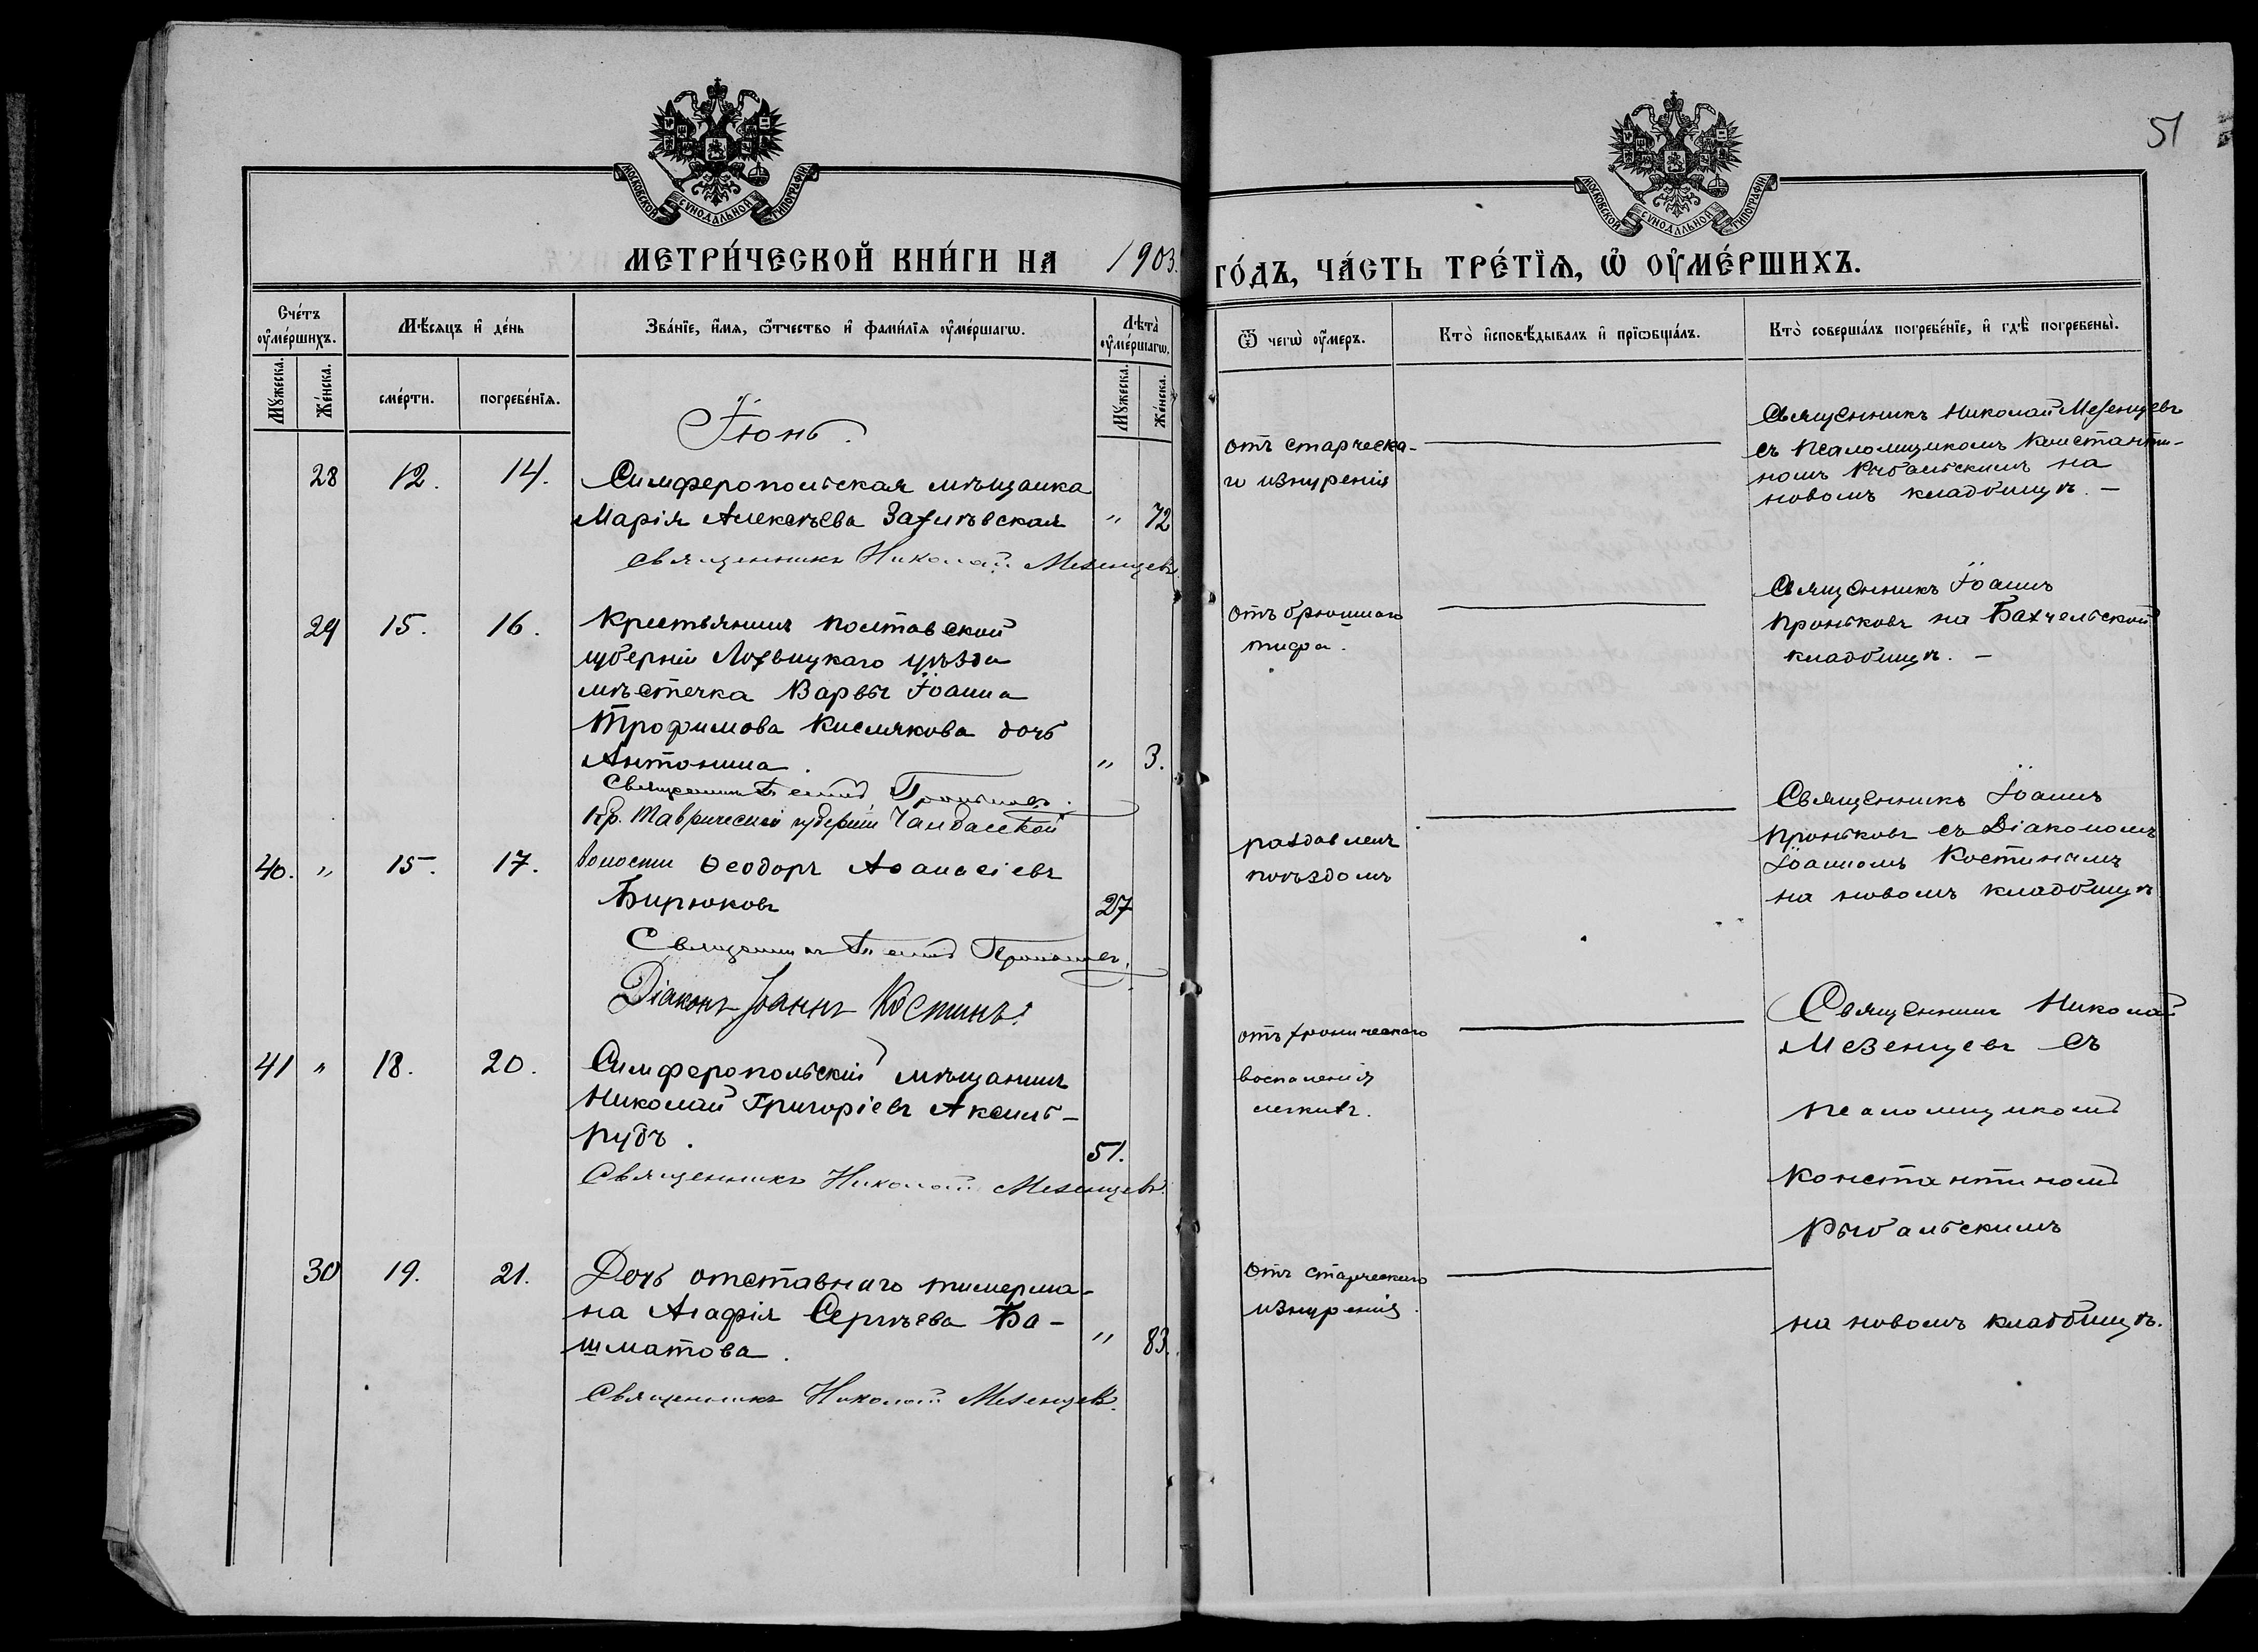 51
МОСКОВСКОЙ СУНОДАЛЬНОЙ ТИПОГРАФІИ
МОСКОВСКОЙ СУНОДАЛЬНОЙ ТИПОГРАФІИ
МЕТРИ́ЧЕСКОЙ КНИ́ГИ НА 1903. ГО́ДЪ, ЧА́СТЬ ТРЕ́ТЇѦ, Ѿ ОУ҆МЕ́РШИХЪ.
Сче́тъ оу҆ме́ршихъ.
Мꙋ́жеска.
Же́нска.
Мѣ́сяцъ и҆ де́нь
сме́рти.
погребе́нїѧ.
Зва́нїе, и҆́мѧ, ѻ҆́тчество и҆ фами́лїѧ оу҆ме́ршагѡ.
Лѣта̀ оу҆ме́ршагѡ.
Мꙋ́жеска.
Же́нска.
Ѿ чегѡ̀ оу҆́меръ.
Кто̀ и҆сповѣ́дывалъ и҆ прїѡбща́лъ.
Кто̀ соверша́лъ погребе́нїе, и҆ гдѣ̀ погребены̀.
Іюнь.
28 12. 14. Симферопольская мѣщанка
Марія Алексѣева Захлѣвская " 72
Священникъ Николай Мезенцевъ.
отъ старческа-
го изнуренія
Священникъ Николай Мезенцевъ
съ псаломщикомъ Константи-
номъ Рыбальскимъ на
новомъ кладбищѣ. —
29 15. 16. Крестьянина Полтавской
губерніи Лохвицкаго уѣзда
мѣстечка Варвы Іоанна
Трофимова Кислякова дочь
Антонина. " 3.
Священникъ Проньковъ.
отъ брюшнаго
тифа.
Священникъ Іоаннъ
Проньковъ на Бахчельской
кладбищѣ. —
Кр. Таврической губерніи
40. " 15. 17. волости Ѳеодоръ Аѳанасіевъ
Бирюковъ 27
Священникъ Проньковъ.
Діаконъ Іоаннъ Костинъ.
раздавленъ
поѣздомъ
Священникъ Іоаннъ
Проньковъ съ Діакономъ
Іоанномъ Костинымъ
на новомъ кладбищѣ
41 " 18. 20. Симферопольскій мѣщанинъ
Николай Григоріевъ Аксель-
рудъ. 51.
Священникъ Николай Мезенцевъ.
отъ хроническаго
воспаленія
легкихъ.
Священникъ Николай
Мезенцевъ съ
псаломщикомъ
Константиномъ
Рыбальскимъ
на новомъ кладбищѣ.
30 19. 21. Дочь отставнаго тимерма-
на Агафія Сергѣева Ба-
шматова. " 83.
Священникъ Николай Мезенцевъ.
отъ старческаго
изнуренія.